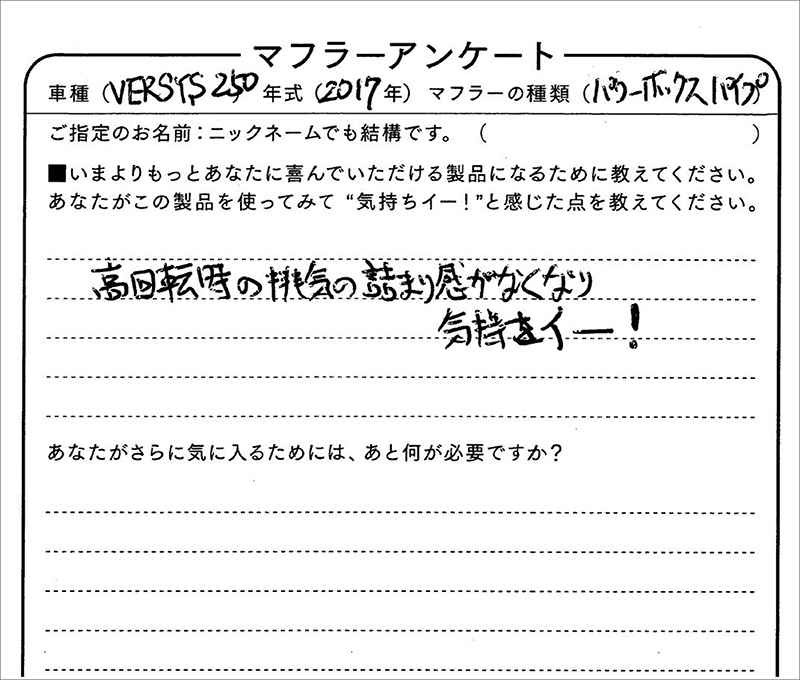 マフラーアンケート
車種（VERSYS 250 年式（2017年）マフラーの種類（パワーボックスパイプ）
ご指定のお名前：ニックネームでも結構です。（ ）
■いまよりもっとあなたに喜んでいただける製品になるために教えてください。
あなたがこの製品を使ってみて “気持ちイー！”と感じた点を教えてください。
高回転時の排気の詰まり感がなくなり
気持ちイー！
あなたがさらに気に入るためには、あと何が必要ですか？